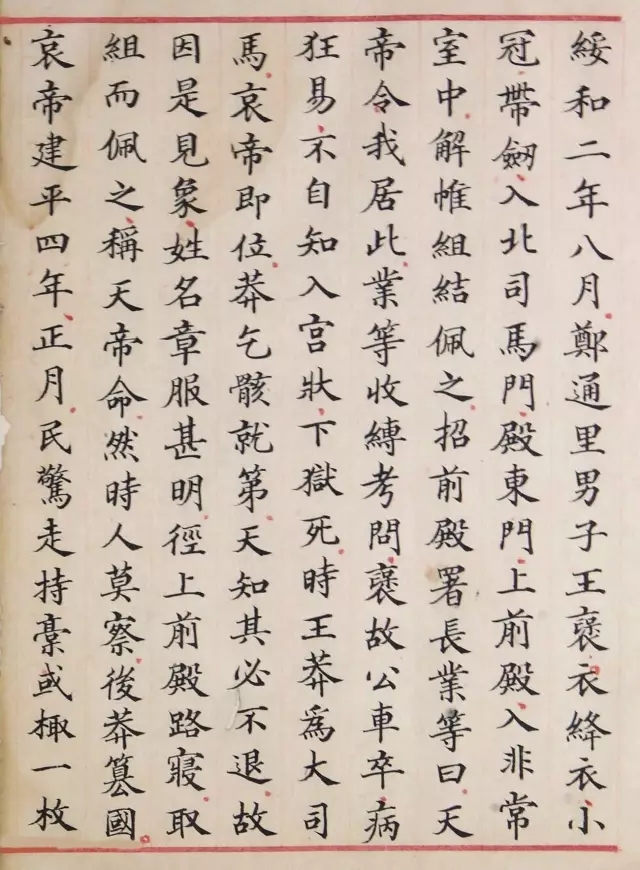 綏和二年八月鄭通里男子王襃衣絳衣小
冠帶劒入北司馬門殿東門上前殿入非常
室中解帷組結佩之招前殿署長業等曰天
帝令我居此業等收縛考問襃故公車卒病
狂易不自知入宮狀下獄死時王莽爲大司
馬哀帝即位莽乞骸就第天知其必不退故
因是見象姓名章服甚明徑上前殿路寢取
組而佩之稱天帝命然時人莫察後莽篡國
哀帝建平四年正月民驚走持稾或棷一枚